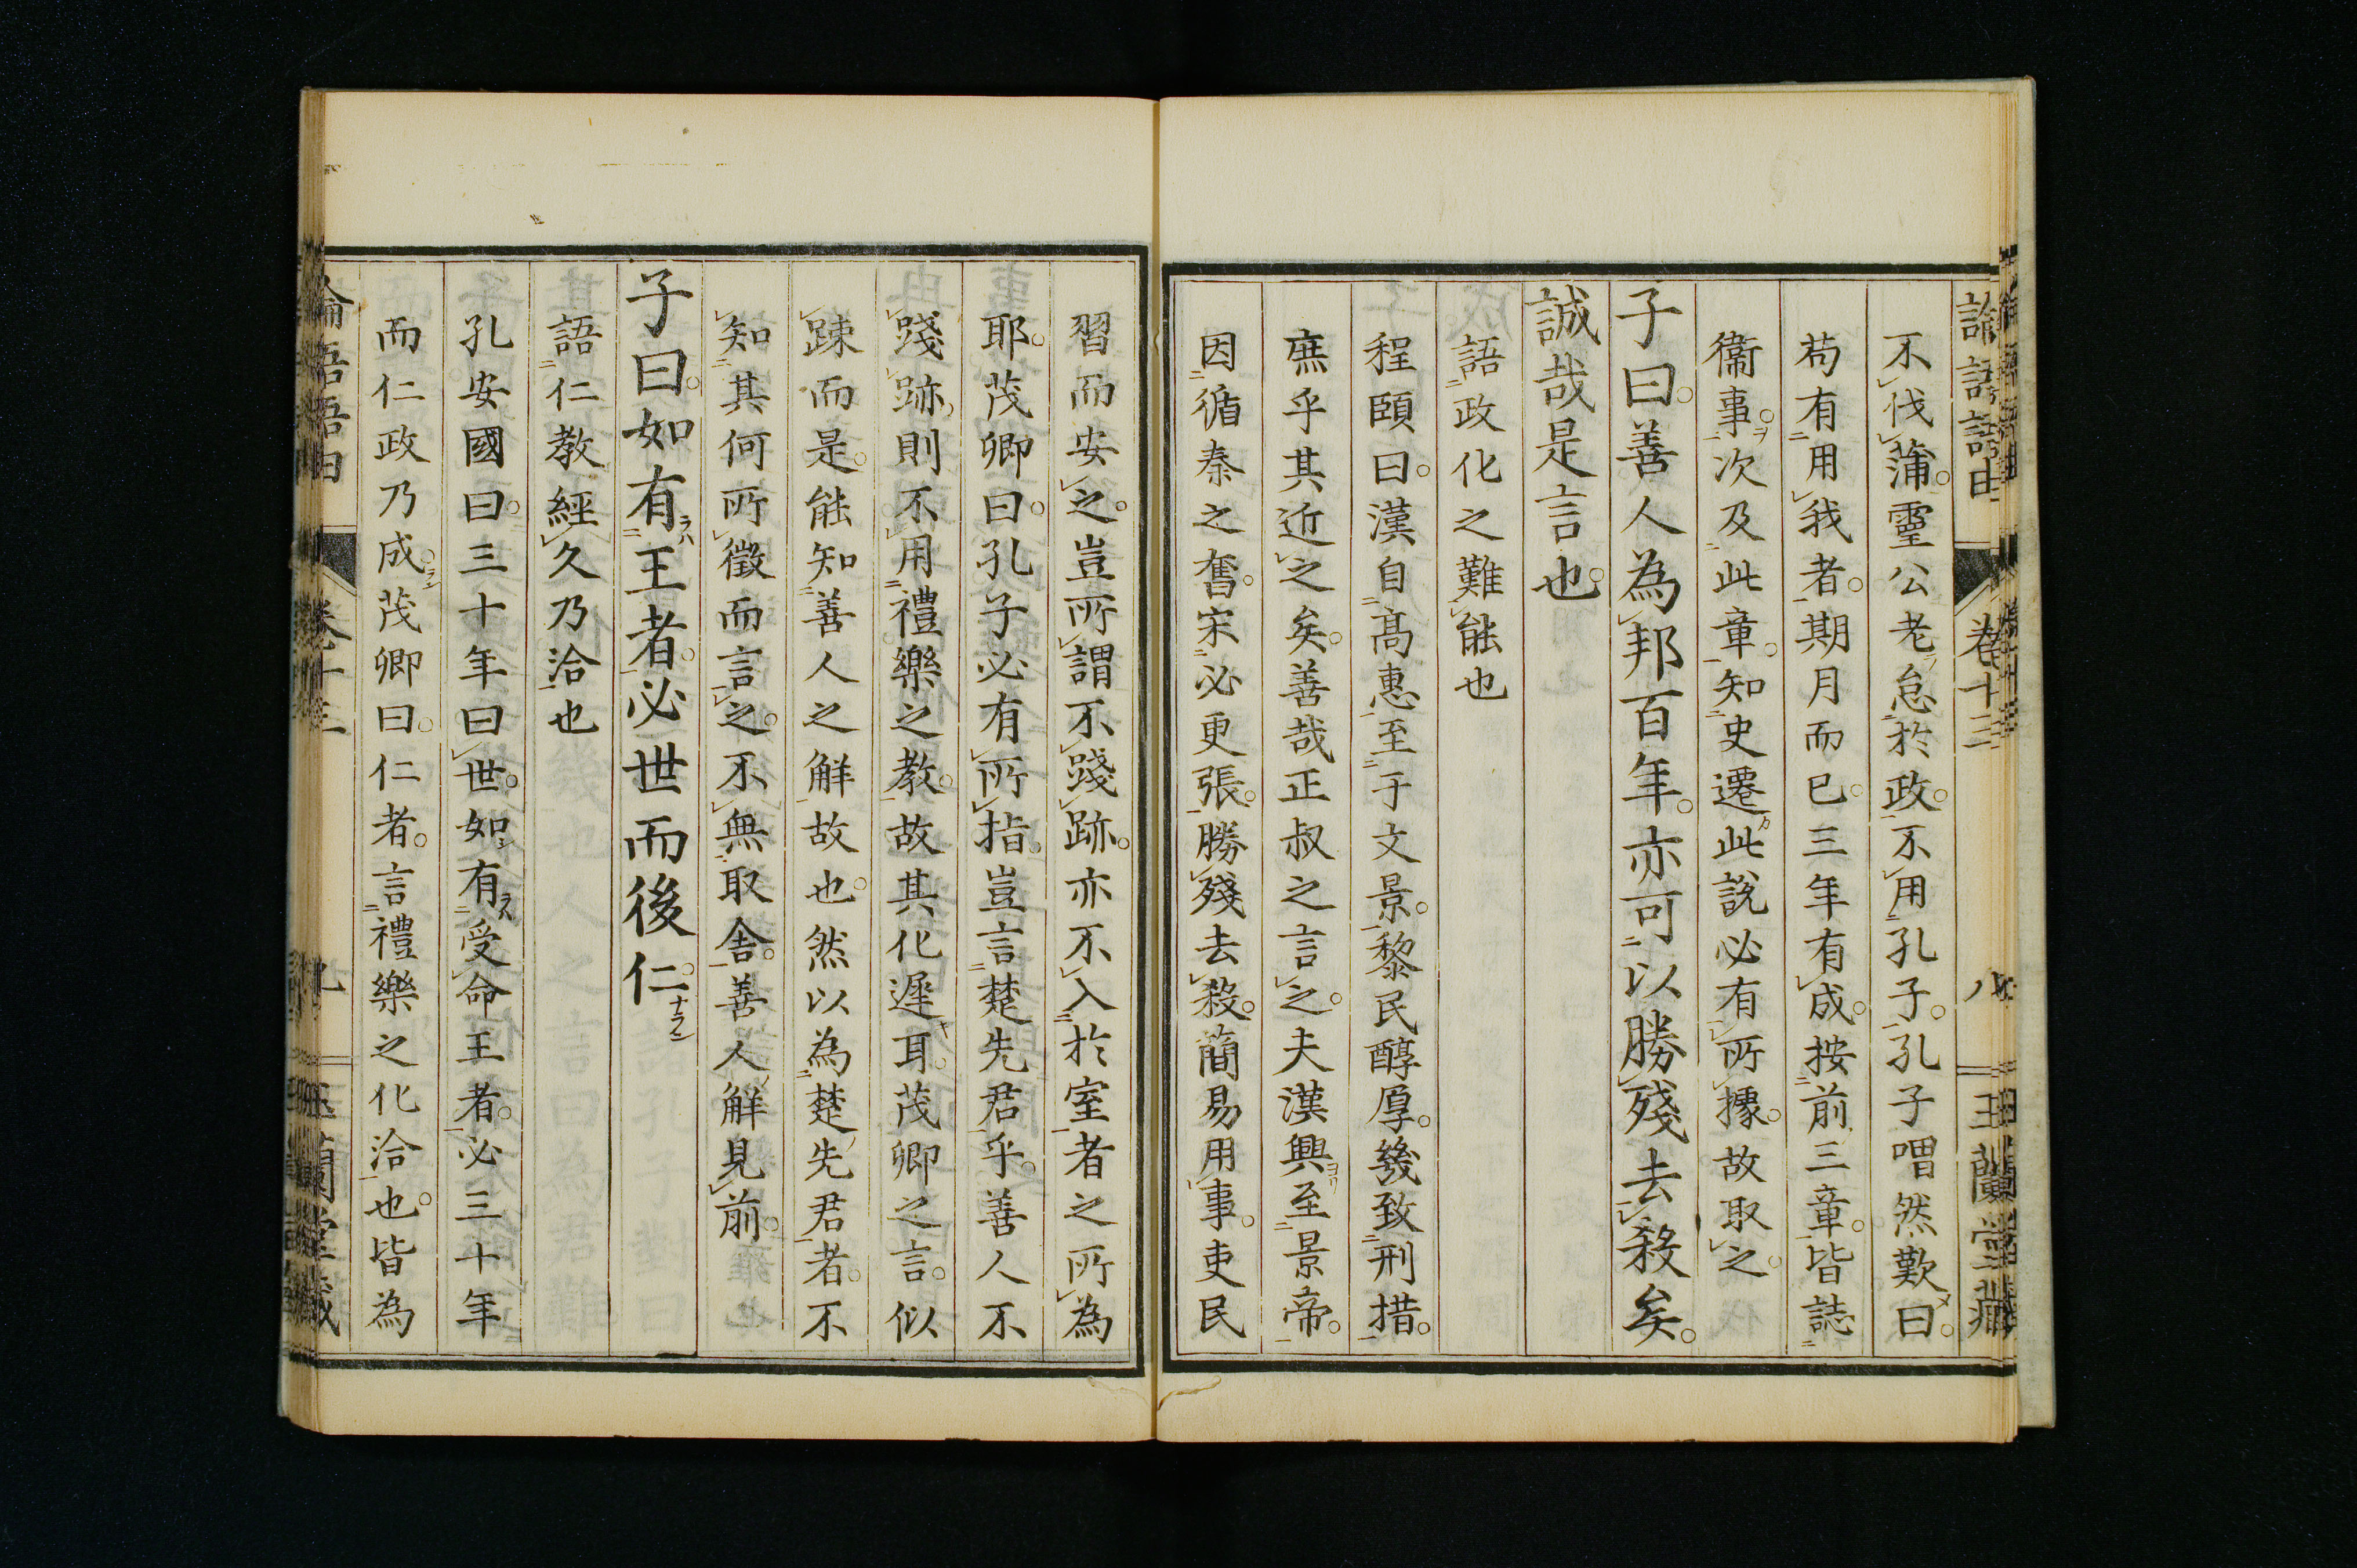 論語語由 卷十三 八 玉蘭堂藏
不伐蒲。靈公老怠於政。不用孔子。孔子喟然歎曰。
苟有用我者。期月而已。三年有成。按前三章。皆誌
衞事。次及此章。知史遷此說必有所據。故取之。
子曰。善人為邦百年。亦可以勝殘去殺矣。
誠哉是言也。
語政化之難能也
程頤曰。漢自高惠至于文景。黎民醇厚。幾致刑措。
庶乎其近之矣。善哉正叔之言之。夫漢興至景帝。
因循秦之舊。宋必更張。勝殘去殺。簡易用事。吏民
習而安之。豈所謂不踐跡。亦不入於室者之所為
耶。茂卿曰。孔子必有所指。豈言楚先君乎。善人不
踐跡則不用禮樂之教。故其化遲耳。茂卿之言。似
踈而是。能知善人之解故也。然以為楚先君者。不
知其何所徵而言之。不無取舍。善人解見前。
子曰。如有王者。必世而後仁。
語仁教經久乃洽也
孔安國曰。三十年曰世。如有受命王者。必三十年
而仁政乃成。茂卿曰。仁者。言禮樂之化洽也。皆為
論語語由 卷十三 九 玉蘭堂藏